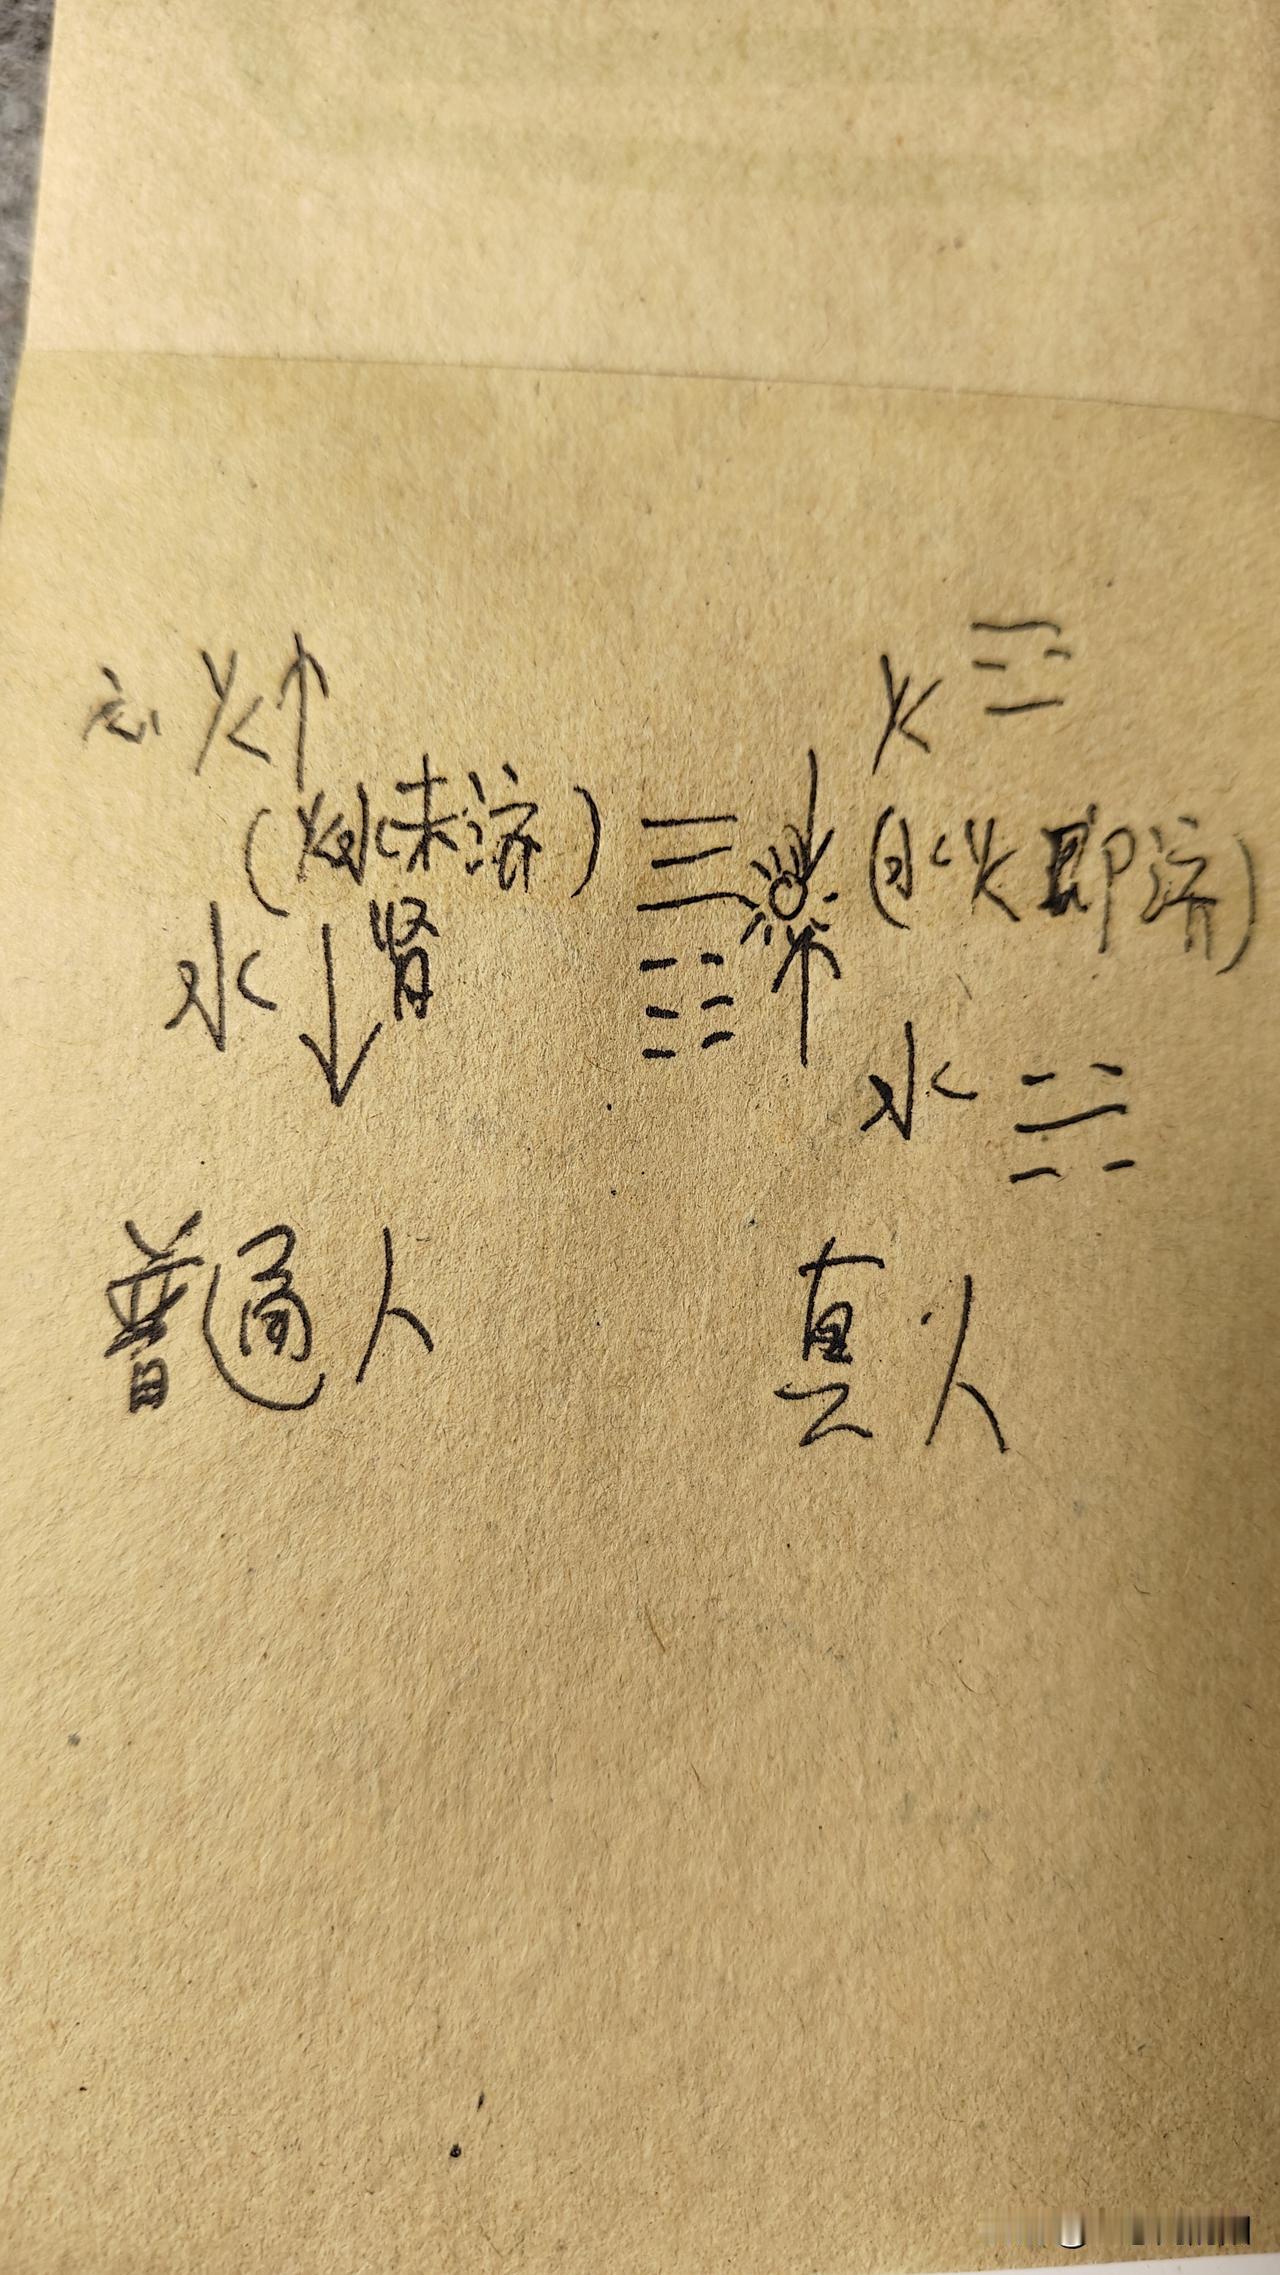 心火↑
(火水未济)
水↓肾
普通人
火☲
(水火即济)
水☵
真人